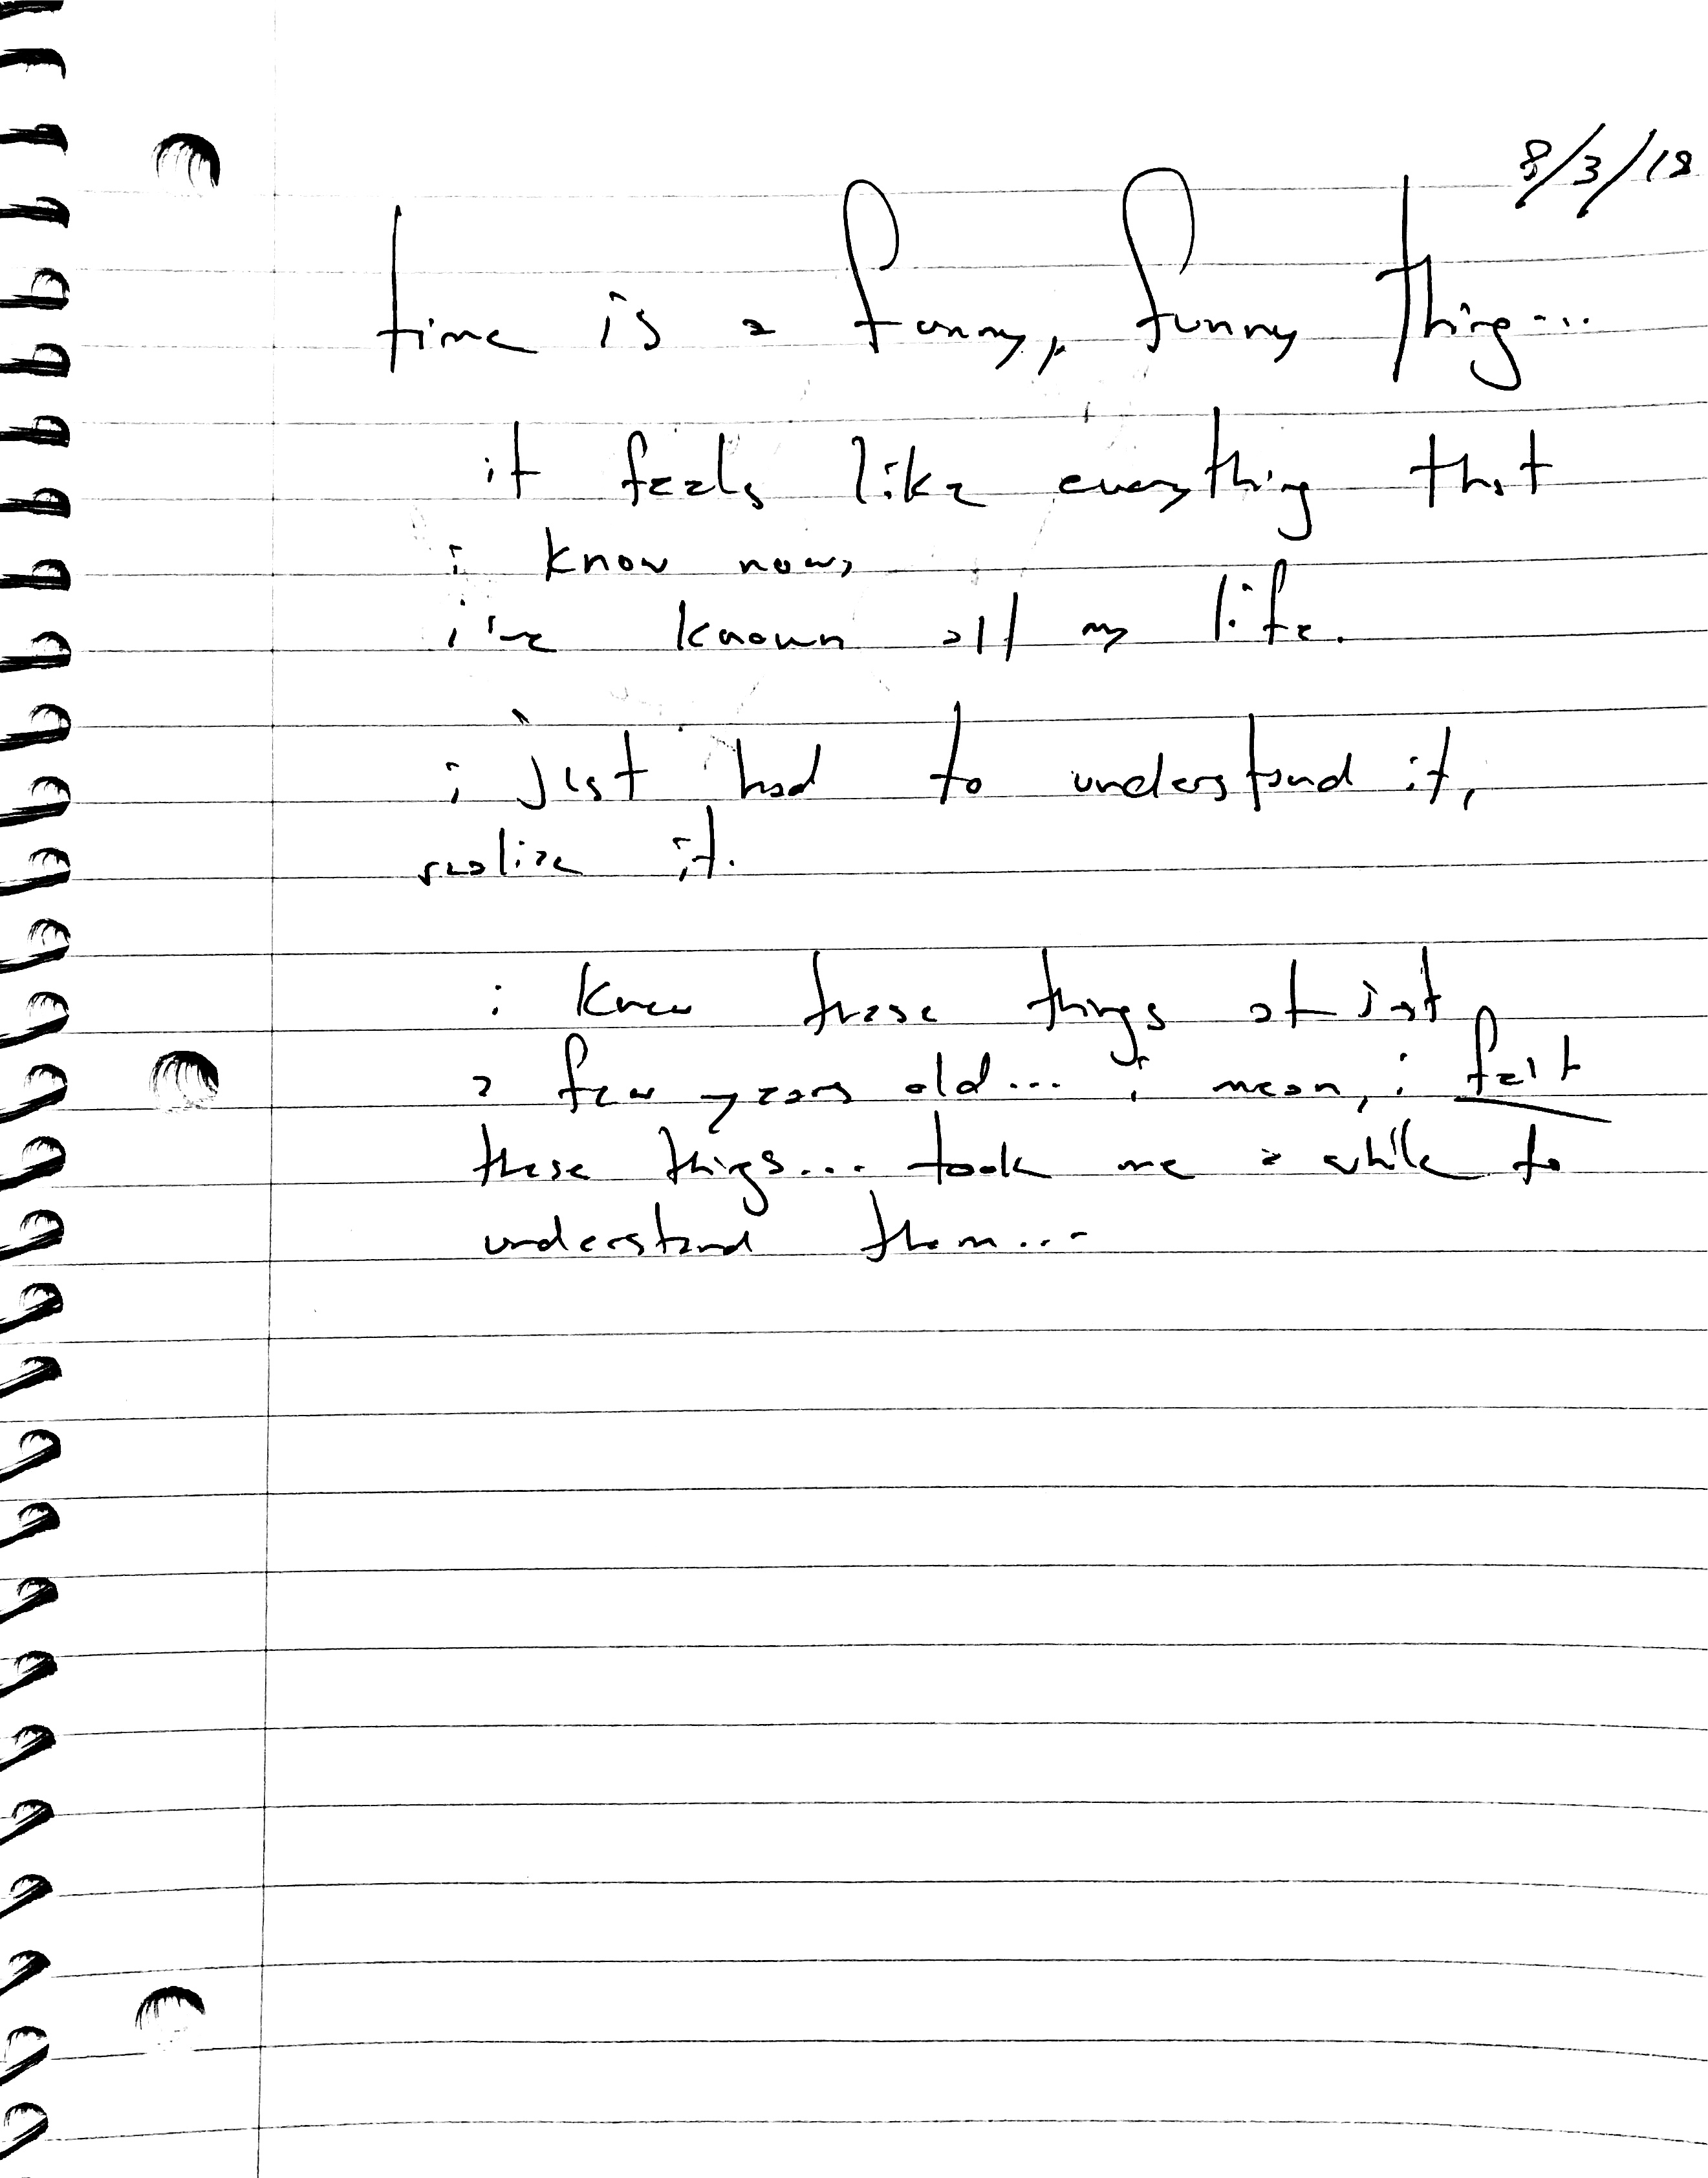 8/3/18
time is a funny, funny thing...
it feels like everything that
i know now,
i've known all my life.
i just had to understand it,
realize it.
i knew these things at just
a few years old... i mean, i felt
these things... took me a while to
understand them...